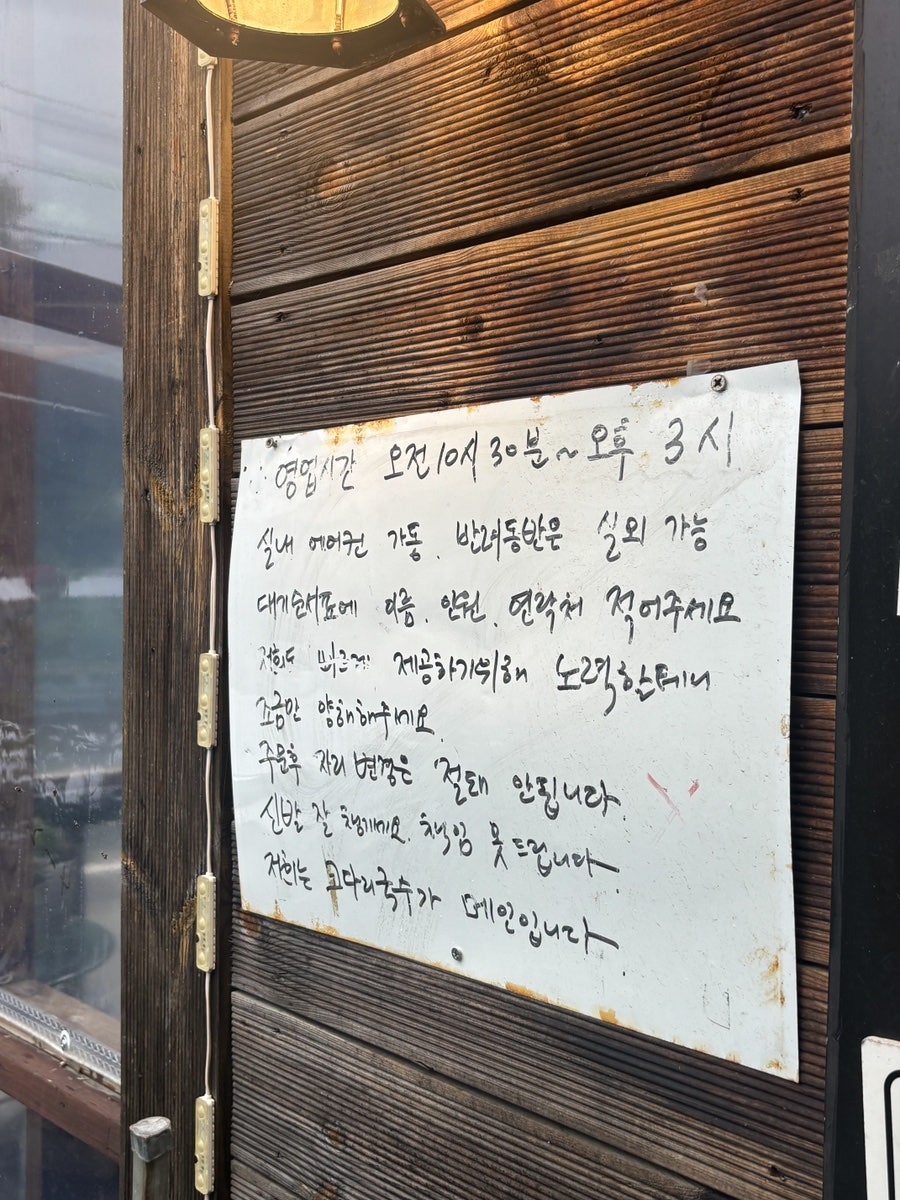 영업시간 오전 10시 30분 ~ 오후 3시
실내 에어컨 가동. 반려동반은 실외 가능
대기순서표에 이름. 인원. 연락처 적어주세요
저희도 빠르게 제공하기위해 노력할테니
조금만 양해해주세요.
주문후 자리 변경은 '절대 안됩니다.
신발 잘 챙기세요. 책임 못드립니다.
저희는 코다리국수가 메인입니다.